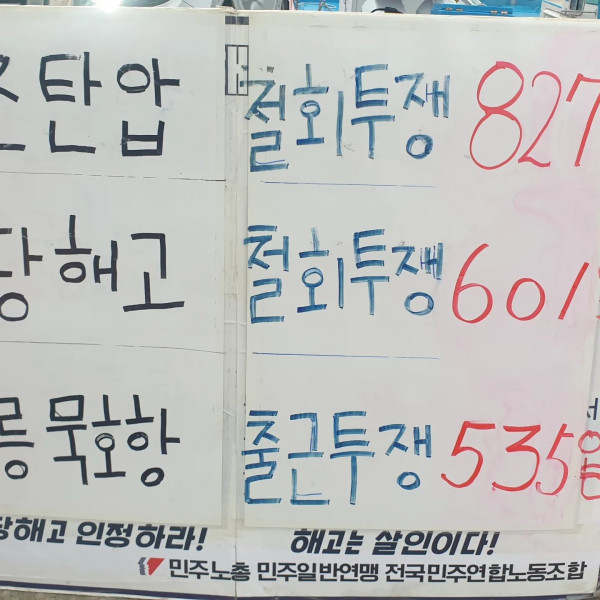 조탄압 철회투쟁 827
당해고 철회투쟁 601
릉묵호항 출근투쟁 535일
당해고 인정하라! 해고는 살인이다!
민주노총 민주일반연맹 전국민주연합노동조합